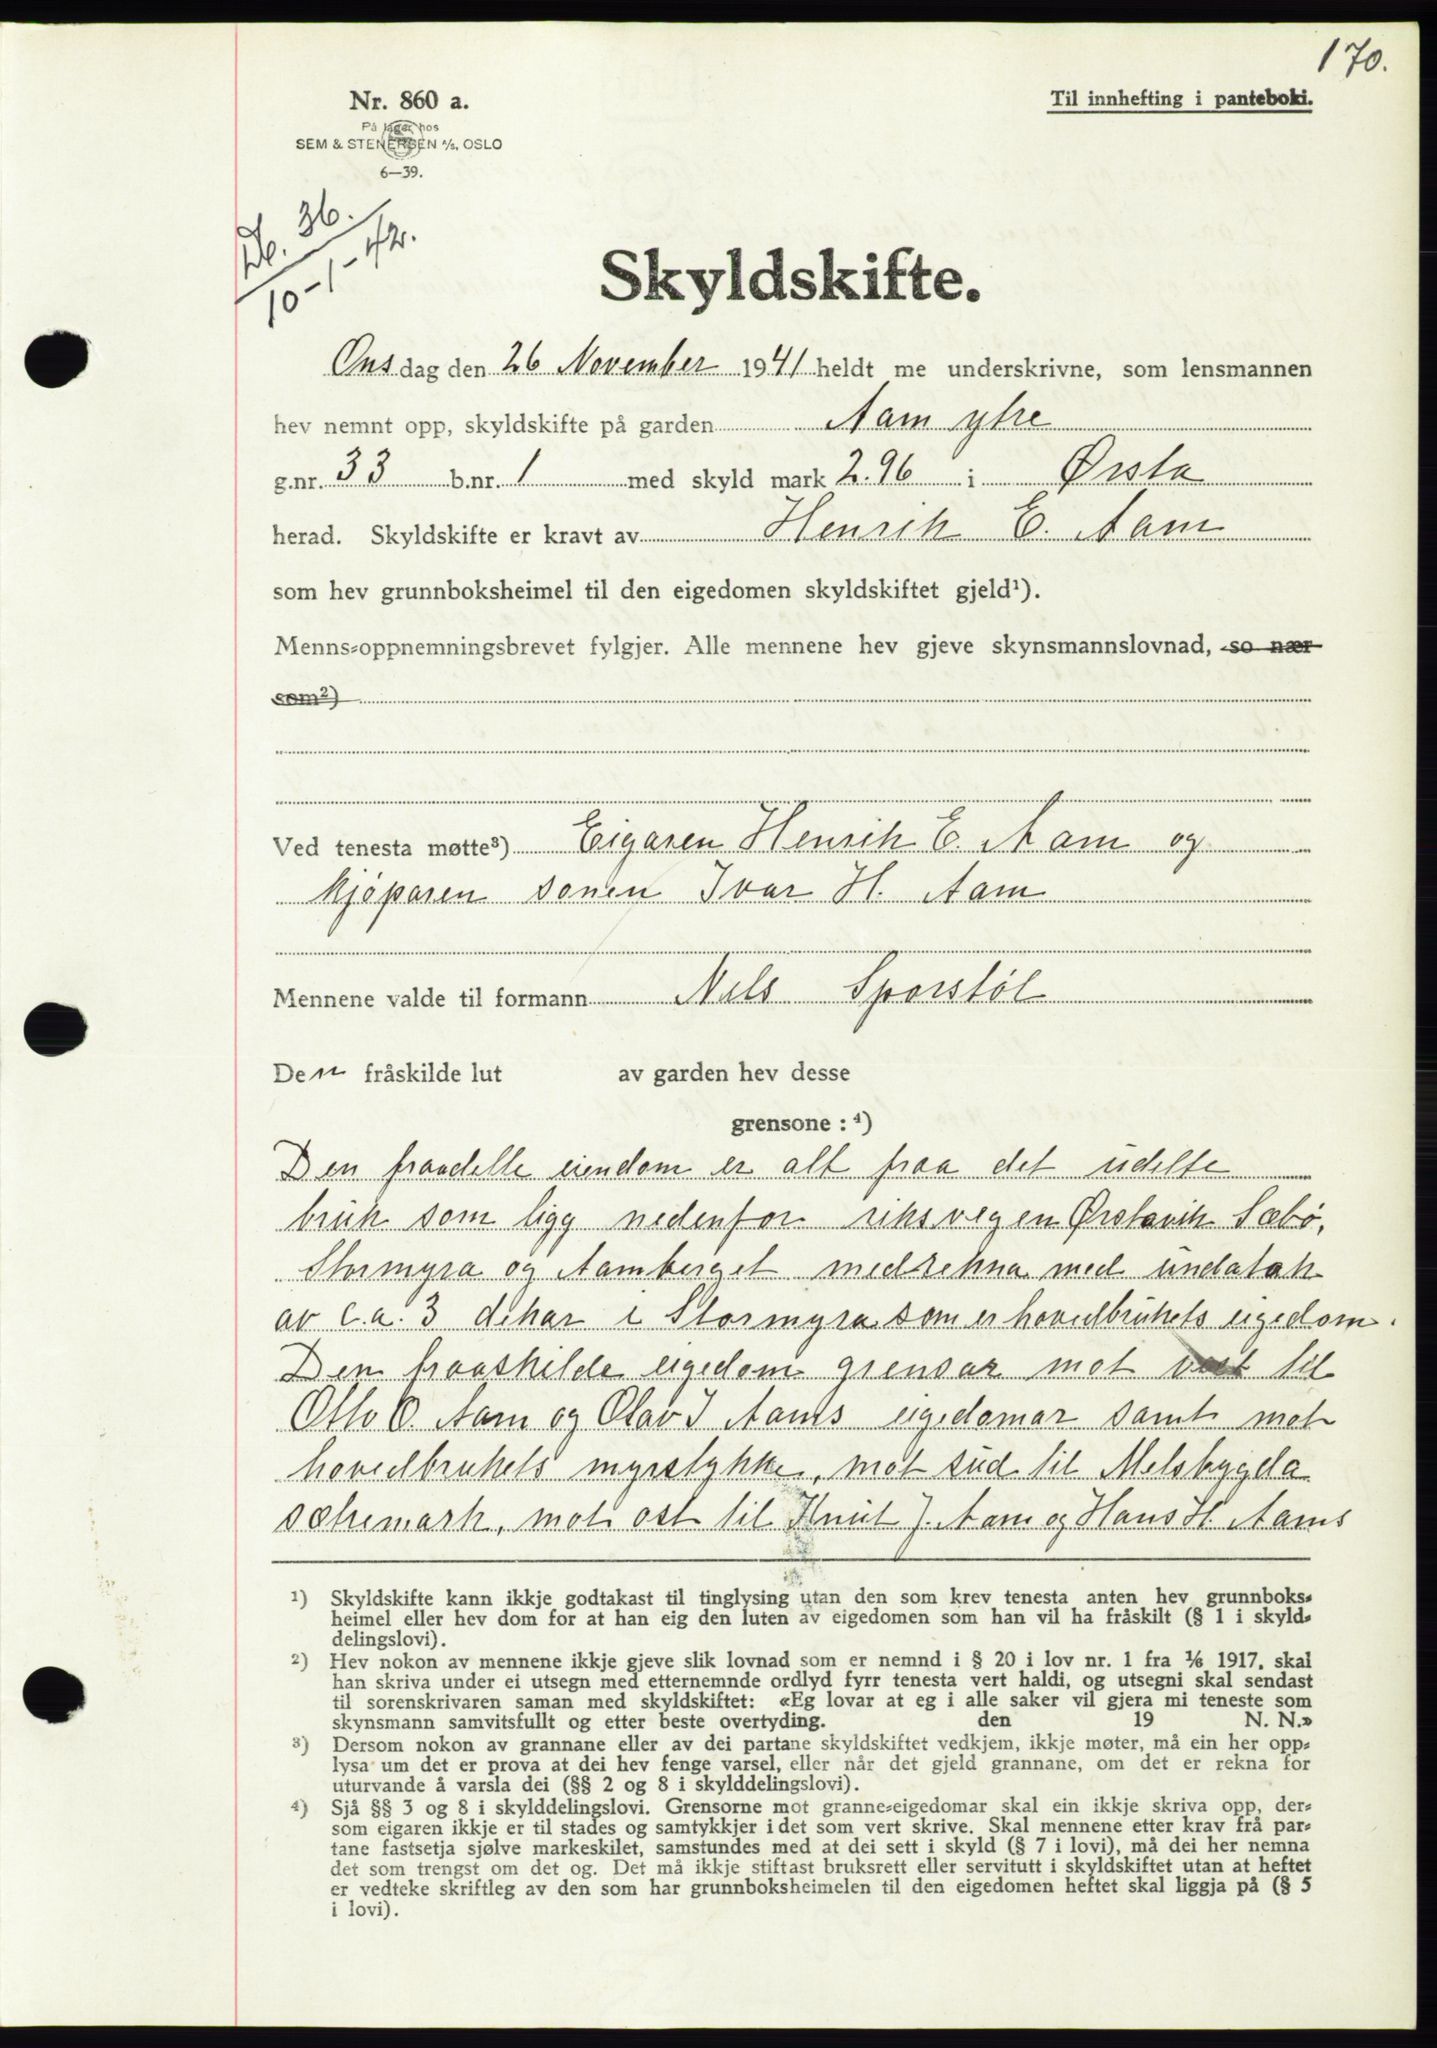 170.
Nr. 860 a.
Til innhefting i panteboki.
På lager hos
SEM & STENERSEN A/S, OSLO
6—39.
De. 36.
10-1-42.
Skyldskifte.
Onsdag den 26 November 1941 heldt me underskrivne, som lensmannen
hev nemnt opp, skyldskifte på garden Aam ytre
g.nr. 33 b.nr. 1 med skyld mark 2.96 i Ørsta
herad. Skyldskifte er kravt av Henrik E. Aam
som hev grunnboksheimel til den eigedomen skyldskiftet gjeld¹).
Menns-oppnemningsbrevet fylgjer. Alle mennene hev gjeve skynsmannslovnad, so nær
som²)
Ved tenesta møtte³) Eigaren Henrik E. Aam og
kjøparen sonen Ivar H. Aam
Mennene valde til formann Nils Sporstøl
Den fråskilde lut av garden hev desse
grensone : ⁴)
Den fraadelte eiendom er alt fraa det udelte
bruk som ligg nedenfor riksvegen Ørstavik Sæbø,
Stormyra og Aamberget medrekna med undatak
av c.a. 3 dekar i Stormyra som er hovedbrukets eigedom.
Den fraaskilde eigedom grensar mot vest til
Otto O. Aam og Olav J Aams eigedomar samt mot
hovedbrukets myrstykke, mot sud til Melsbygda
sætremark, mot ost til Knut J. Aam og Hans H. Aams
¹) Skyldskifte kann ikkje godtakast til tinglysing utan den som krev tenesta anten hev grunnboks-
heimel eller hev dom for at han eig den luten av eigedomen som han vil ha fråskilt (§ 1 i skyld-
delingslovi).
²) Hev nokon av mennene ikkje gjeve slik lovnad som er nemnd i § 20 i lov nr. 1 fra 1/6 1917, skal
han skriva under ei utsegn med etternemnde ordlyd fyrr tenesta vert haldi, og utsegni skal sendast
til sorenskrivaren saman med skyldskiftet: «Eg lovar at eg i alle saker vil gjera mi teneste som
skynsmann samvitsfullt og etter beste overtyding. den 19 N. N.»
³) Dersom nokon av grannane eller av dei partane skyldskiftet vedkjem, ikkje møter, må ein her opp-
lysa um det er prova at dei hev fenge varsel, eller når det gjeld grannane, om det er rekna for
uturvande å varsla dei (§§ 2 og 8 i skylddelingslovi).
⁴) Sjå §§ 3 og 8 i skylddelingslovi. Grensorne mot granne-eigedomar skal ein ikkje skriva opp, der-
som eigaren ikkje er til stades og samtykkjer i det som vert skrive. Skal mennene etter krav frå par-
tane fastsetja sjølve markeskilet, samstundes med at dei sett i skyld (§ 7 i lovi), må dei her nemna
det som trengst om det og. Det må ikkje stiftast bruksrett eller servitutt i skyldskiftet utan at heftet
er vedteke skriftleg av den som har grunnboksheimelen til den eigedomen heftet skal liggja på (§ 5
i lovi).